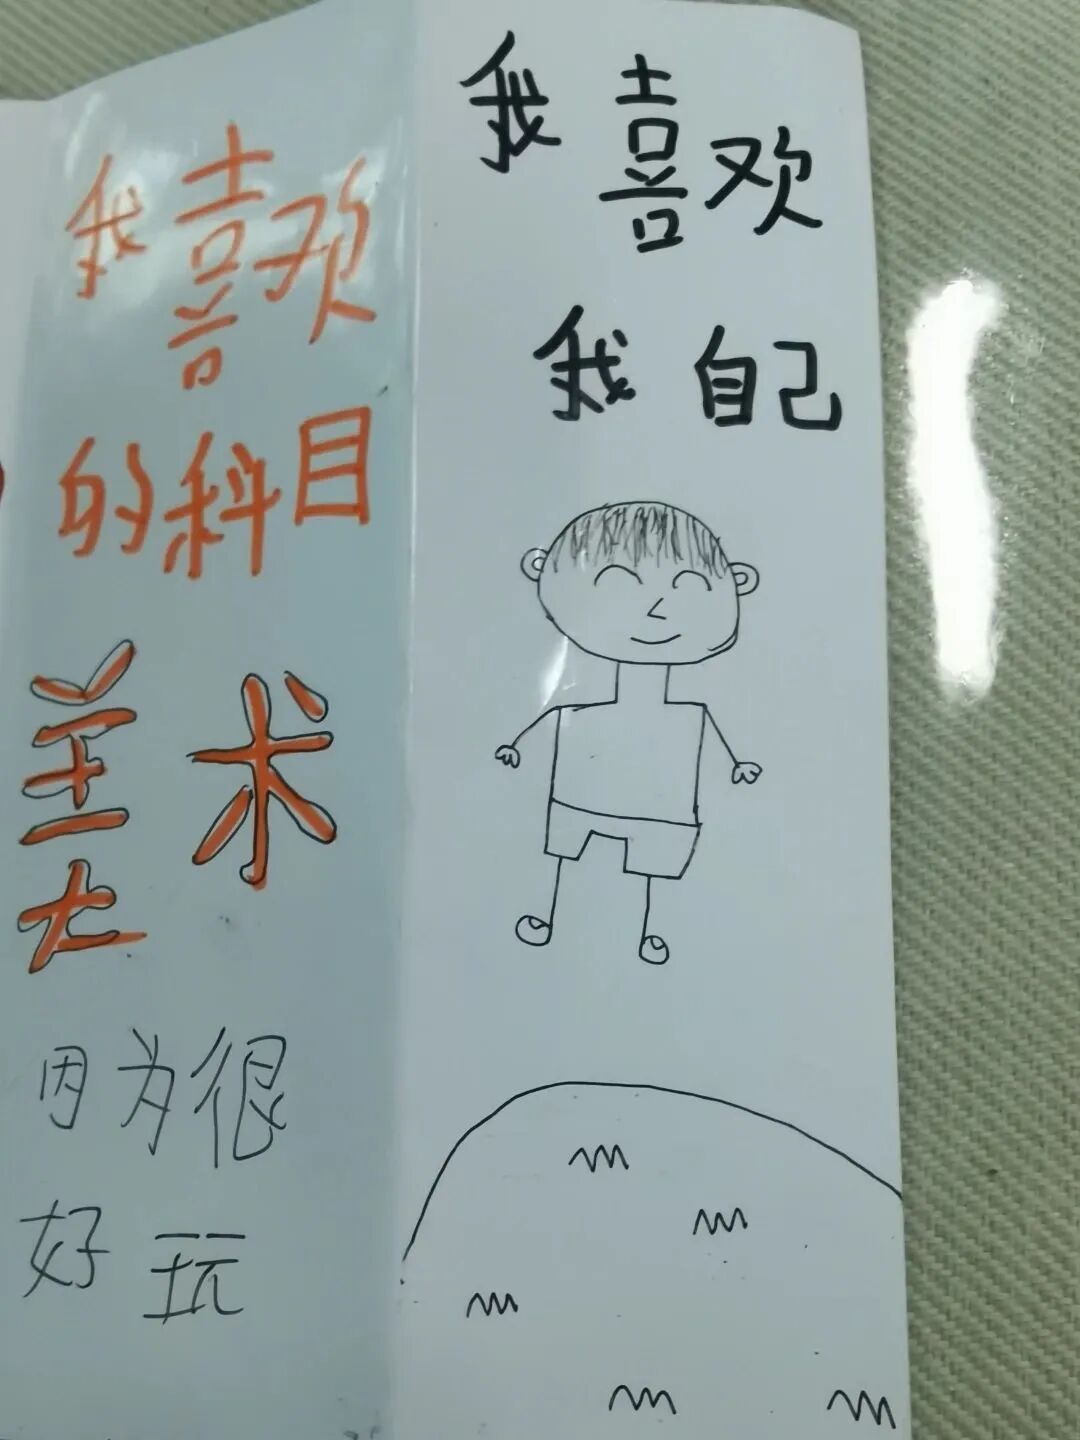 我喜欢
的科目
美术
因为很
好玩
我喜欢
我自己